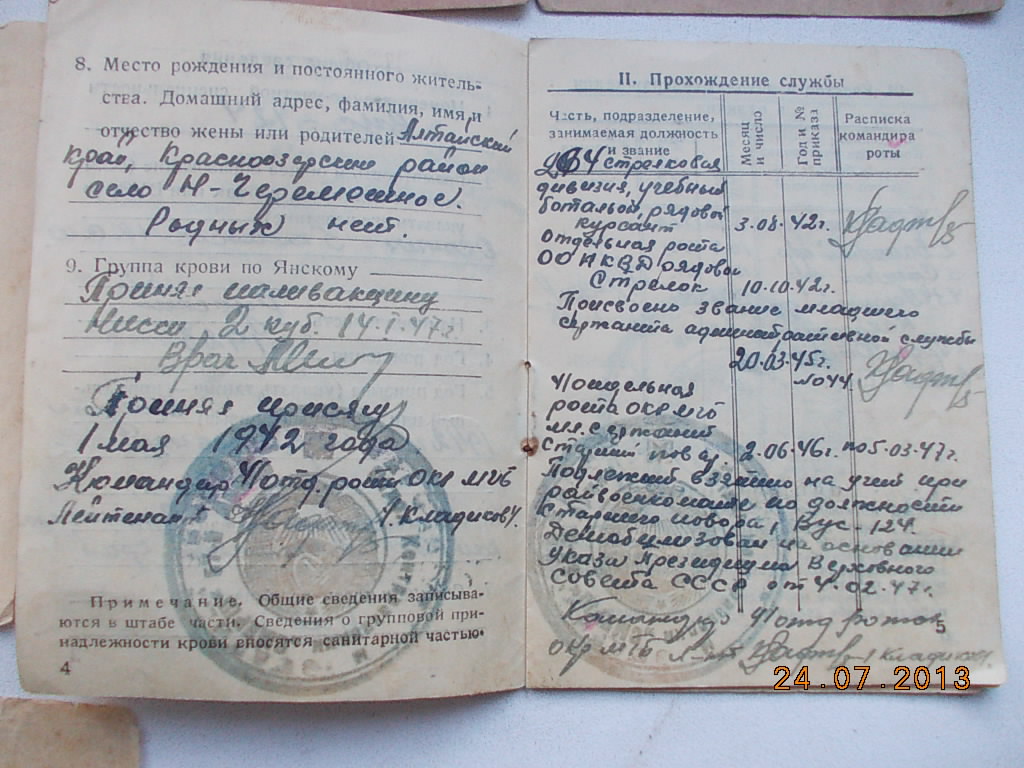 8. Место рождения и постоянного житель-
ства. Домашний адрес, фамилия, имя и
отчество жены или родителей Алтайский
край, Красноозерский район
село Н-Черемошное.
Родных нет.
9. Группа крови по Янскому
Принял
2 куб. 14.I.47г.
Врач
Принял присягу
1 мая 1942 года
Командир 4 отд. роты окр МГБ
Лейтенант /Кладиков/.
Примечание. Общие сведения записыва-
ются в штабе части. Сведения о групповой при-
надлежности крови вносятся санитарной частью.
4
II. Прохождение службы
Часть, подразделение,
занимаемая должность
и звание
Месяц
и число
Год и №
приказа
Расписка
командира
роты
264 стрелковая
дивизия, учебный
батальон, рядовой
курсант 3.08.42г.
Отдельная рота
ОО НКВД рядовой
Стрелок 10.10.42г.
Присвоено звание младшего
сержанта административной службы
20.03.45г.
№044
4 отдельная
рота окр МГБ
мл. сержант
старший повар. 2.06.46г. по 5.03.47г.
Подлежит взятию на учет при
райвоенкомате по должности
Старшего повара, Вус-124.
Демобилизован на основании
указа Президиума Верховного
совета СССР от 4.02.47г.
Командир 4 отд роты
окр МГБ л-нт /Кладиков/.
24.07.2013